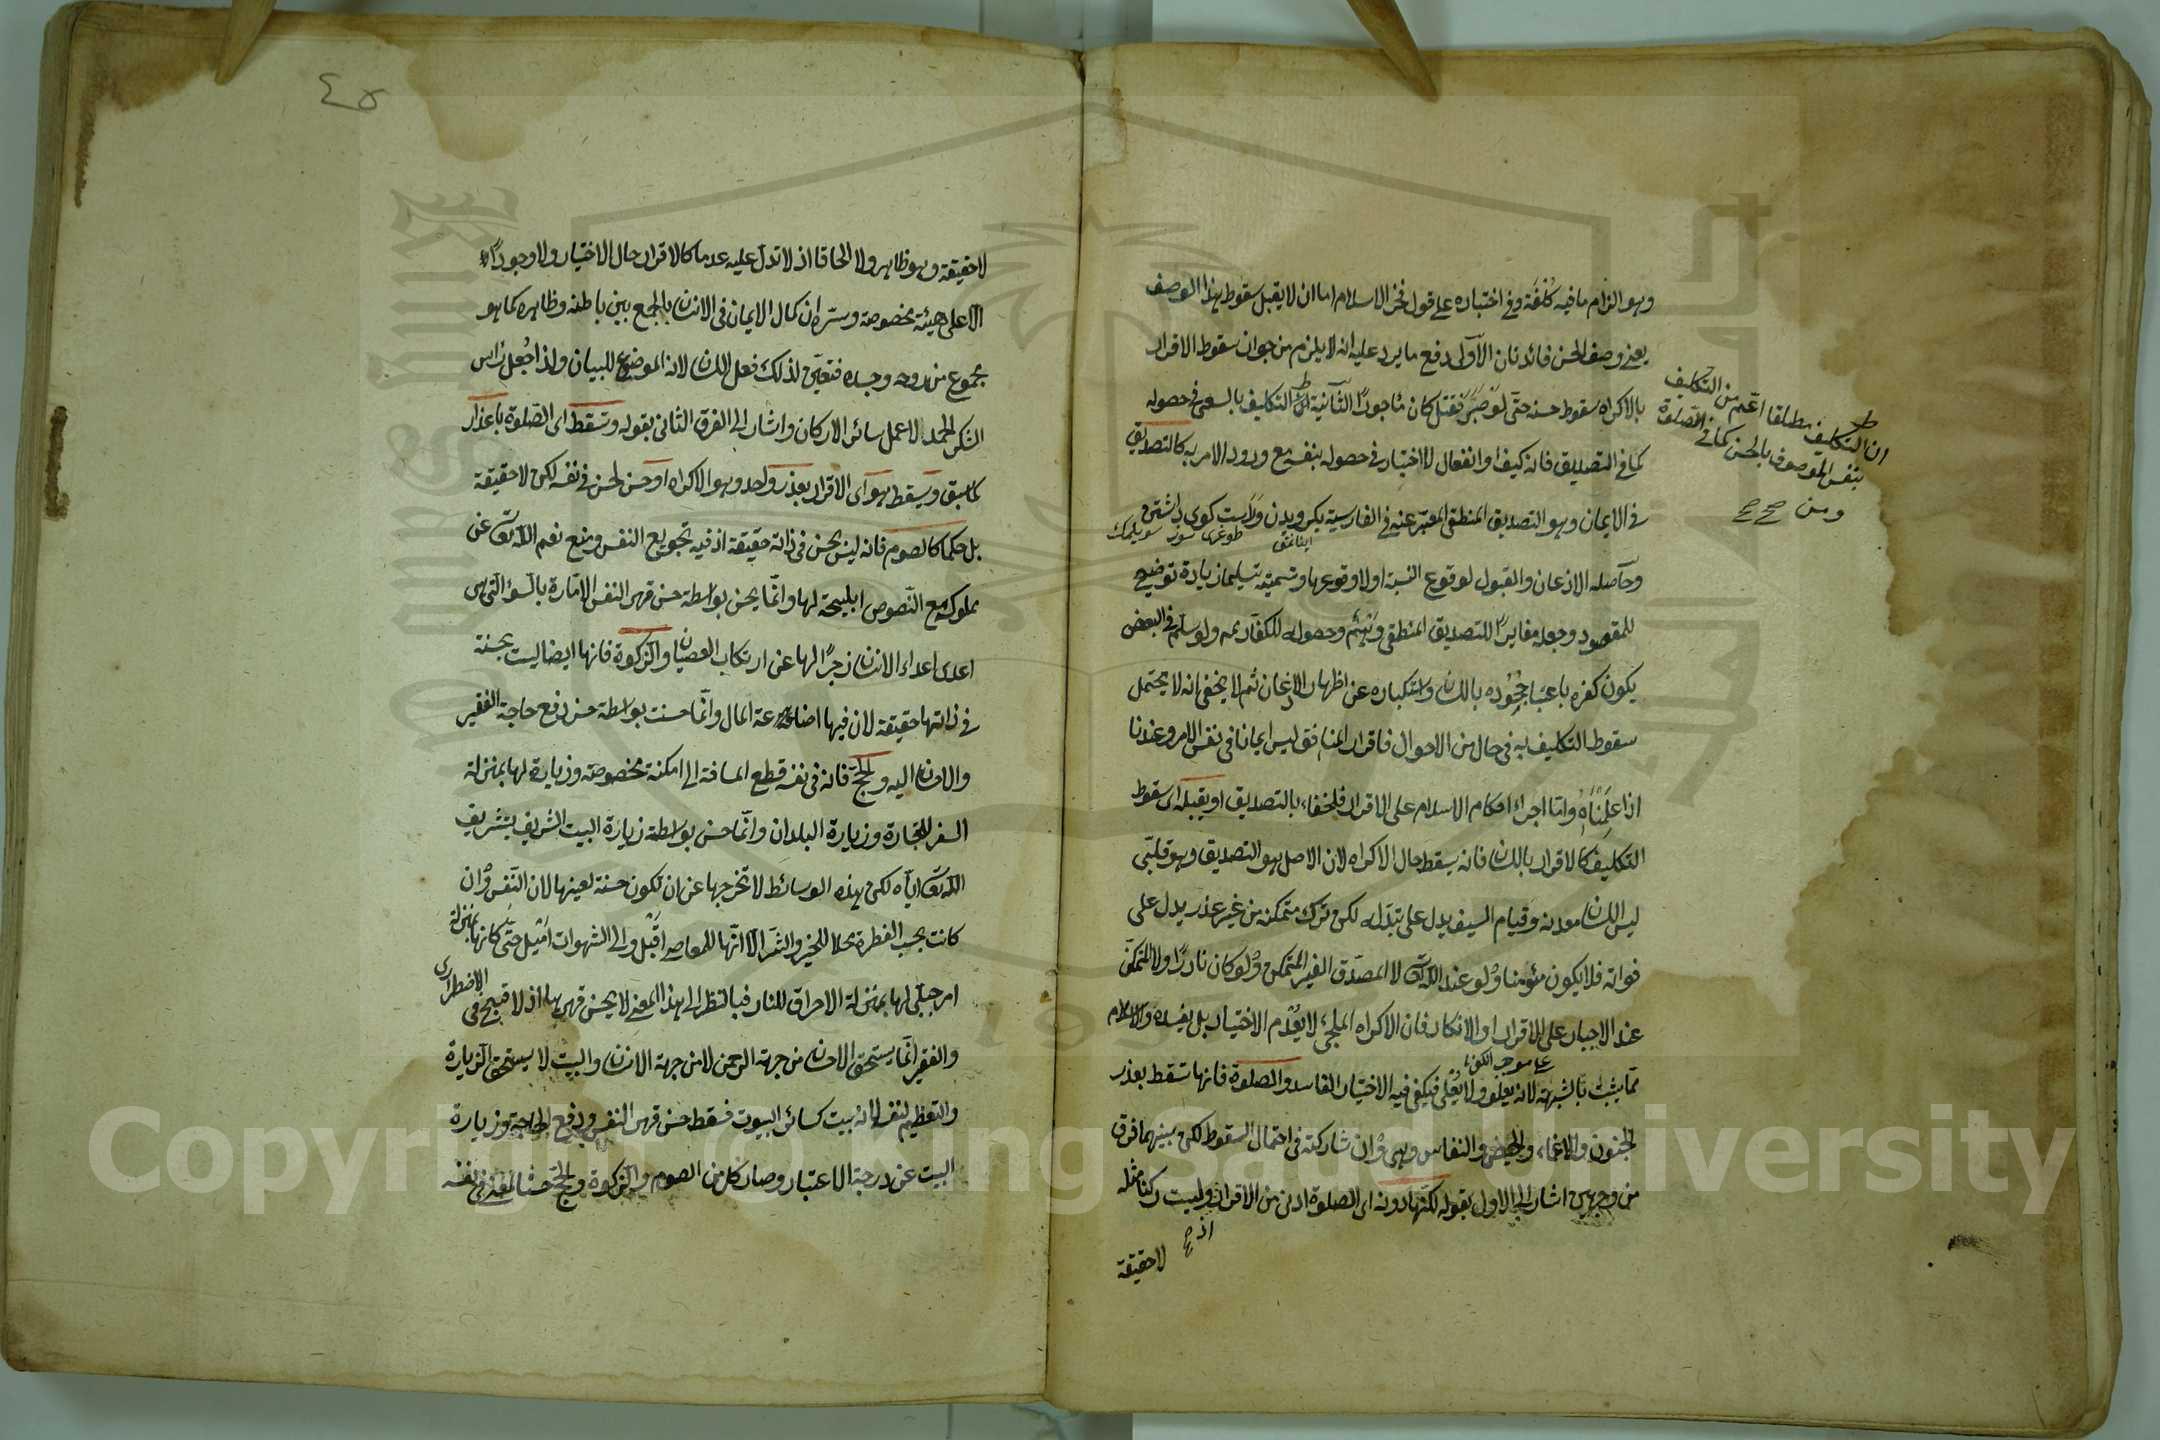 وهو الزام ما فيه كلفة وفى اختياره على قول فخر الاسلام اما ان لا يقبل سقوط هذا الوصف
يعنى وصف الحسن فائدتان الاولى دفع ما يرد عليه انه لا يلزم من جواز سقوط الاقرار
بالاكراه سقوط حسنه حتى لو صبر فقتل كان ماجورا الثانية ان التكليف بالسعى فى حصوله
كما فى التصديق فانه كيف او انفعال لا اختيار فى حصوله بنفسه مع ورود الامر به كالتصديق
فى الايمان وهو التصديق المنطقى المعبر عنه فى الفارسية بكرويدن وراست كوى داشتن
اينانمق طوغرى سوز سويلمك
وحاصله الاذعان والقبول لوقوع النسبة اولا وقوعها وتسميته تسليما زيادة توضيح
للمقصود وجعله مغايرا للتصديق المنطقى وهم وحصوله للكفار يمه ولو سلم فى البعض
يكون كفره باعتبار جحوده باللسان واستكباره عن اظهار الاذعان ثم لا يخفى انه لا يحتمل
سقوط التكليف به فى حال من الاحوال فاقرار المنافق ليس ايمانا فى نفس الامر وعندنا
اذا علمناه واما اجراء احكام الاسلام على الاقرار فلخفاء بالتصديق او يقبله اى سقوط
التكليف كالاقرار باللسان فانه يسقط حال الاكراه لان الاصل هو التصديق وهو قلبى
ليس اللسان معدنه وقيام السيف يدل على تبدله لكن ترك متمكنه من غير عذر يدل على
فواته فلا يكون مؤمنا ولو عند الله تعالى لا المصدق الغير المتمكن ولو كان نادرا ولا المتمكن
عند الاجبار على الاقرار او الانكار فان الاكراه الملجئ لا يعدم الاختيار بل يفسده والاسلام
على موجب الكفر
مما يثبت بالشبهة لانه يعلو ولا يعلى فيكفى فيه الاختيار الفاسد والصلوة فانها تسقط بعذر
الجنون والاغماء والحيض والنفاس وهى وان شاركته فى احتمال السقوط لكن بينهما فرق
من وجهين اشار الى الاول بقوله لكنها دونه اى الصلوة ادنى من الاقرار وليست ركنا مثله
اذ
لا حقيقة
ان التكليف مطلقا اعم من التكليف
بنفس الموصوف بالحسن كما فى الصلوة
ومن
٤٥
لا حقيقة وهو ظاهر ولا الحاقا اذ لا تدل عليه عدما كالاقرار حال الاختيار ولا وجودا
الا على هيئة مخصوصة وسره ان كمال الايمان فى الانسان بالجمع بين باطنه وظاهره كما هو
مجموع من روحه وجسده فتعين لذلك فعل اللسان لانه الموضوع للبيان ولذا جعل راس
الشكر الحمد لا عمل سائر الاركان واشار الى الفرق الثانى بقوله وتسقط اى الصلوة باعذار
كما سبق ويسقط هو اى الاقرار بعذر واحد وهو الاكراه او حسن لحسن فى نفسه لكن لا حقيقة
بل حكما كالصوم فانه ليس بحسن فى ذاته حقيقة اذ فيه تجويع النفس ومنع نعم الله تعالى عن
مملوكه مع النصوص المبيحة لها وانما يحسن بواسطة حسن قهر النفس الامارة بالسوء التى هى
اعدى اعداء الانسان زجرا لها عن ارتكاب العصيان والزكوة فانها ايضا ليست بحسنة
فى ذاتها حقيقة لان فيها اضاعة المال وانما حسنت بواسطة حسن دفع حاجة الفقير
والاحسان اليه والحج فانه فى نفسه قطع المسافة الى امكنة مخصوصة وزيارة لها بمنزلة
السفر للتجارة وزيارة البلدان وانما حسن بواسطة زيارة البيت الشريف بتشريف
الله تعالى اياه لكن هذه الوسائط لا تخرجها عن ان تكون حسنة لعينها لان النفس وان
كانت بحسب الفطرة محلا للخير والشر الا انها للمعاصى اقبل والى الشهوات اميل حتى كانها بمنزلة
امر جبلى لها بمنزلة الاحراق للنار فبالنظر الى هذا المعنى لا يحسن قهرها اذ لا قبيح فى الاضطرارى
والفقير انما يستحق الاحسان من جهة الرحمن لا من جهة الانسان والبيت لا يستحق الزيارة
والتعظيم لنفسه لانه بيت كسائر البيوت فسقط حسن قهر النفس ودفع الحاجة وزيارة
البيت عن درجة الاعتبار وصار كل من الصوم والزكوة والحج حسنا لمعنى فى نفسه
Copyright © King Saud University